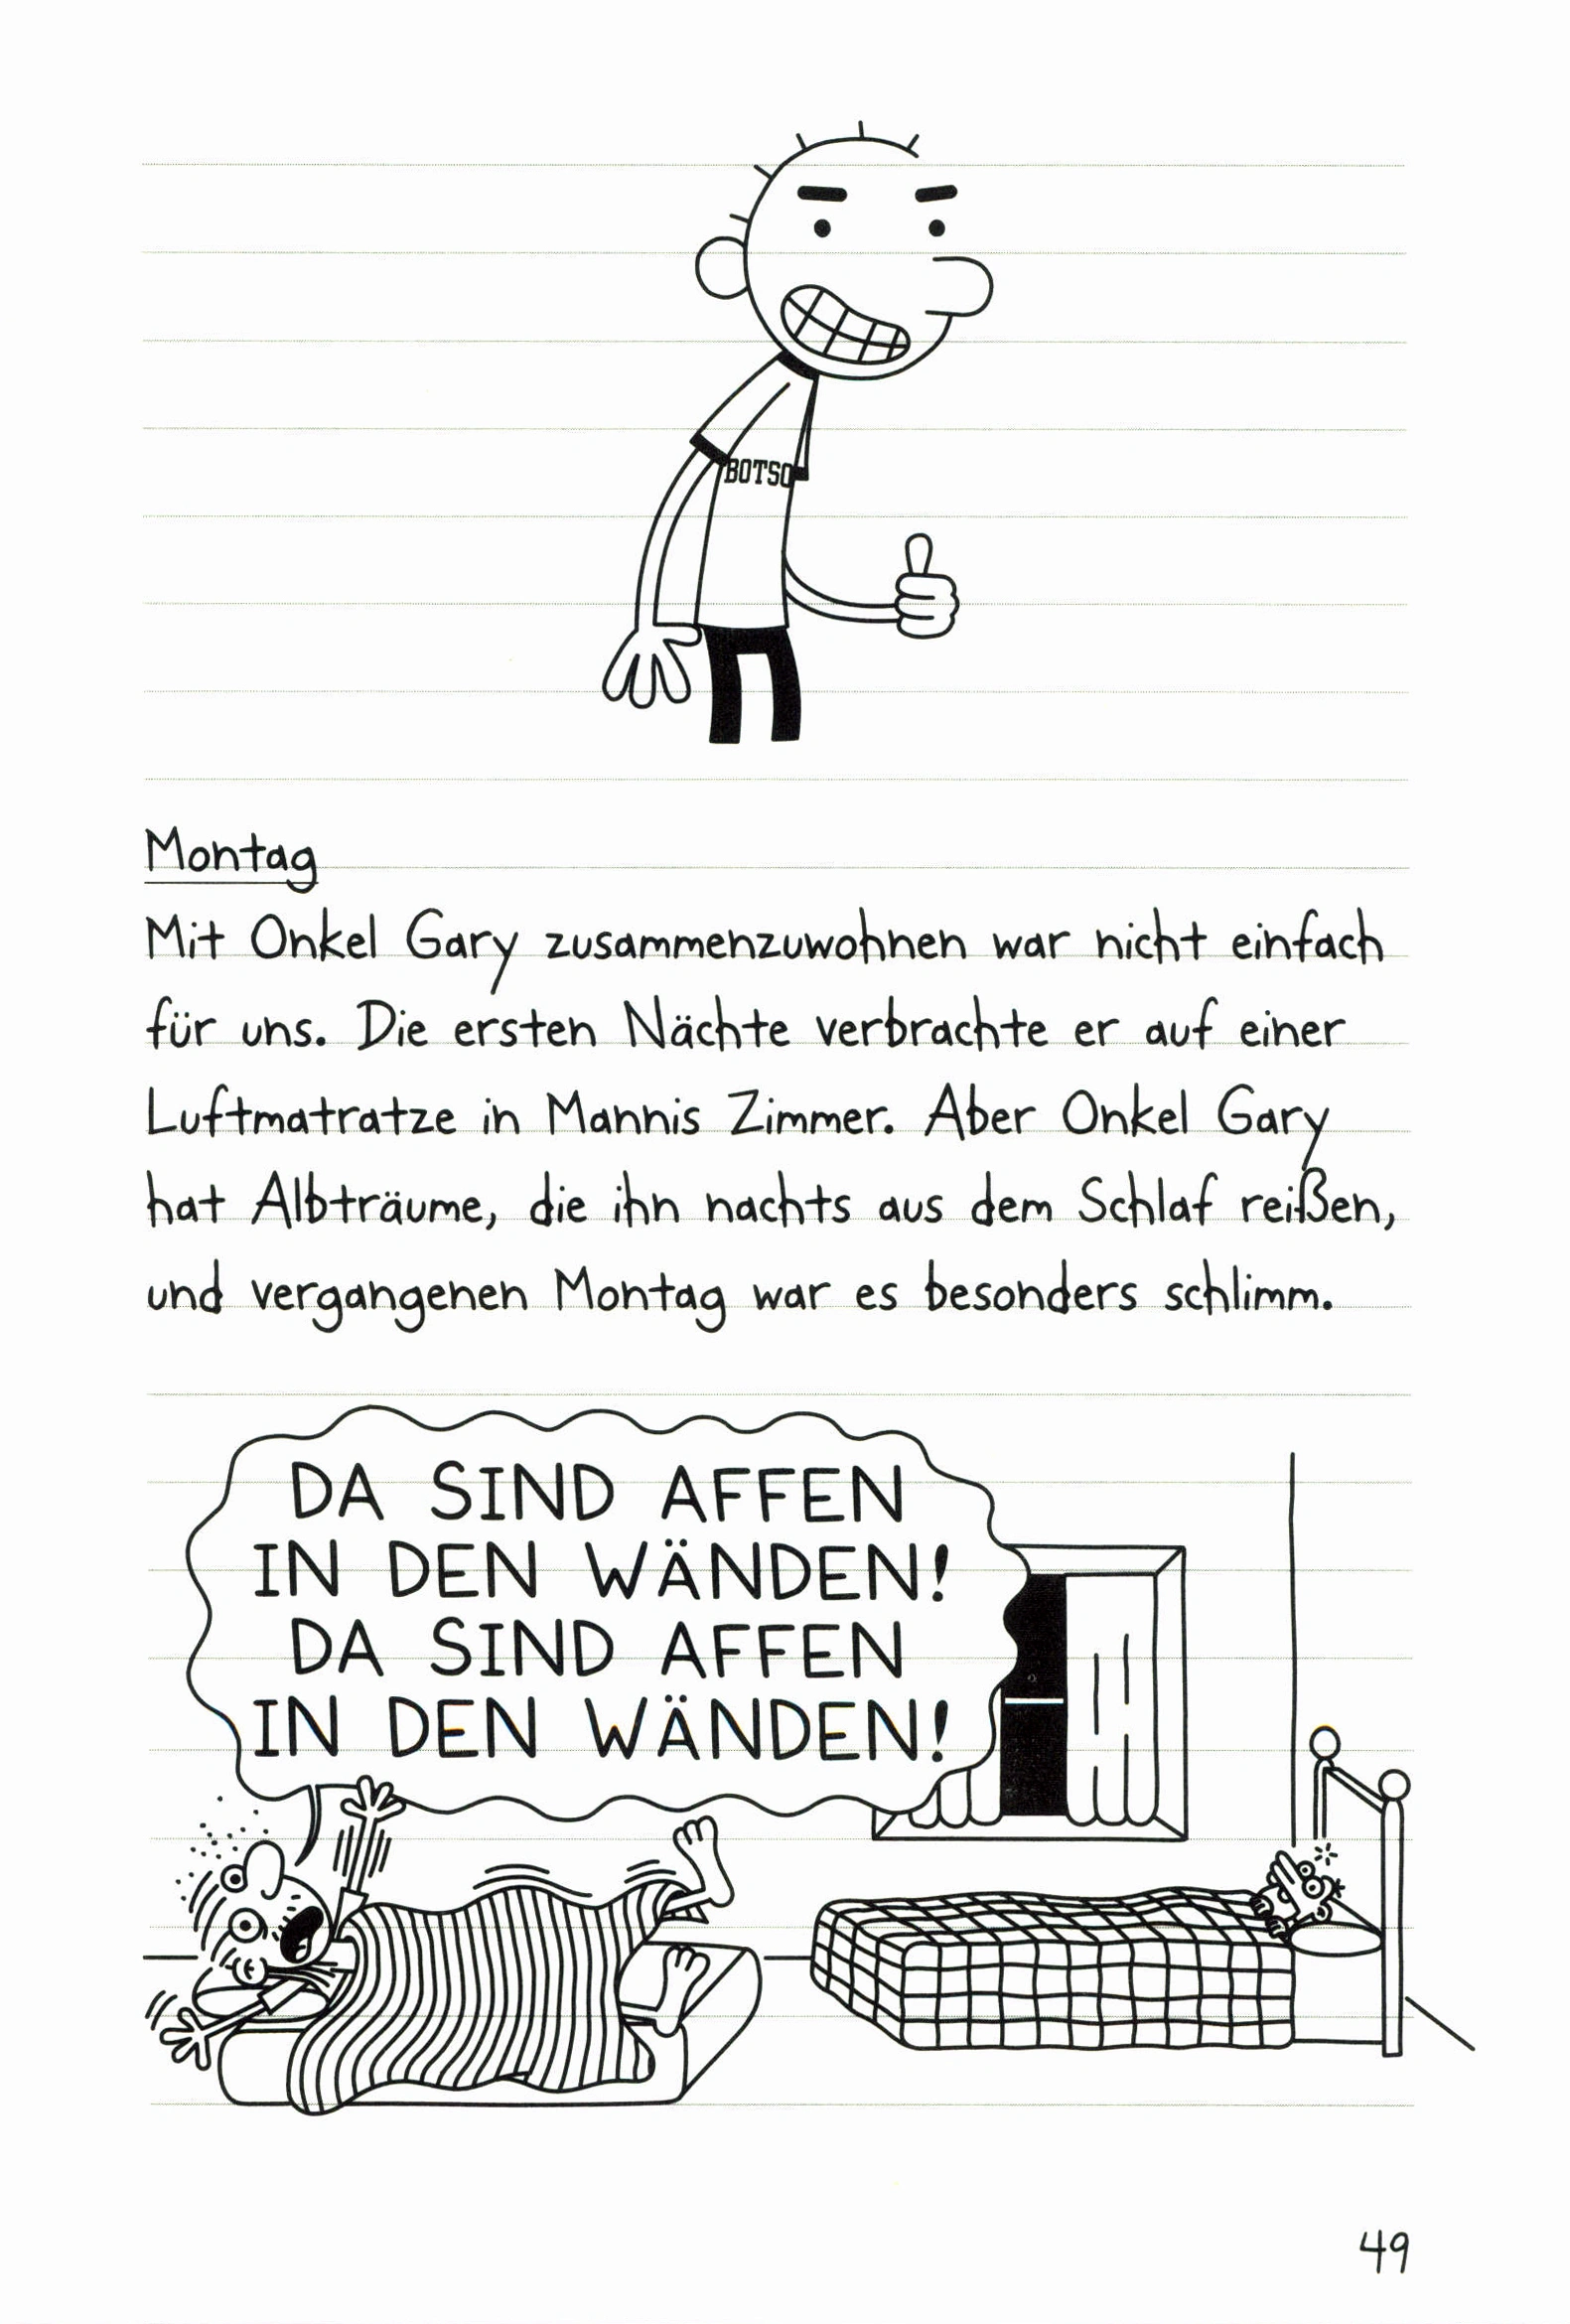 BOTSO
Montag
Mit Onkel Gary zusammenzuwohnen war nicht einfach
für uns. Die ersten Nächte verbrachte er auf einer
Luftmatratze in Mannis Zimmer. Aber Onkel Gary
hat Albträume, die ihn nachts aus dem Schlaf reißen,
und vergangenen Montag war es besonders schlimm.
DA SIND AFFEN
IN DEN WÄNDEN!
DA SIND AFFEN
IN DEN WÄNDEN!
49